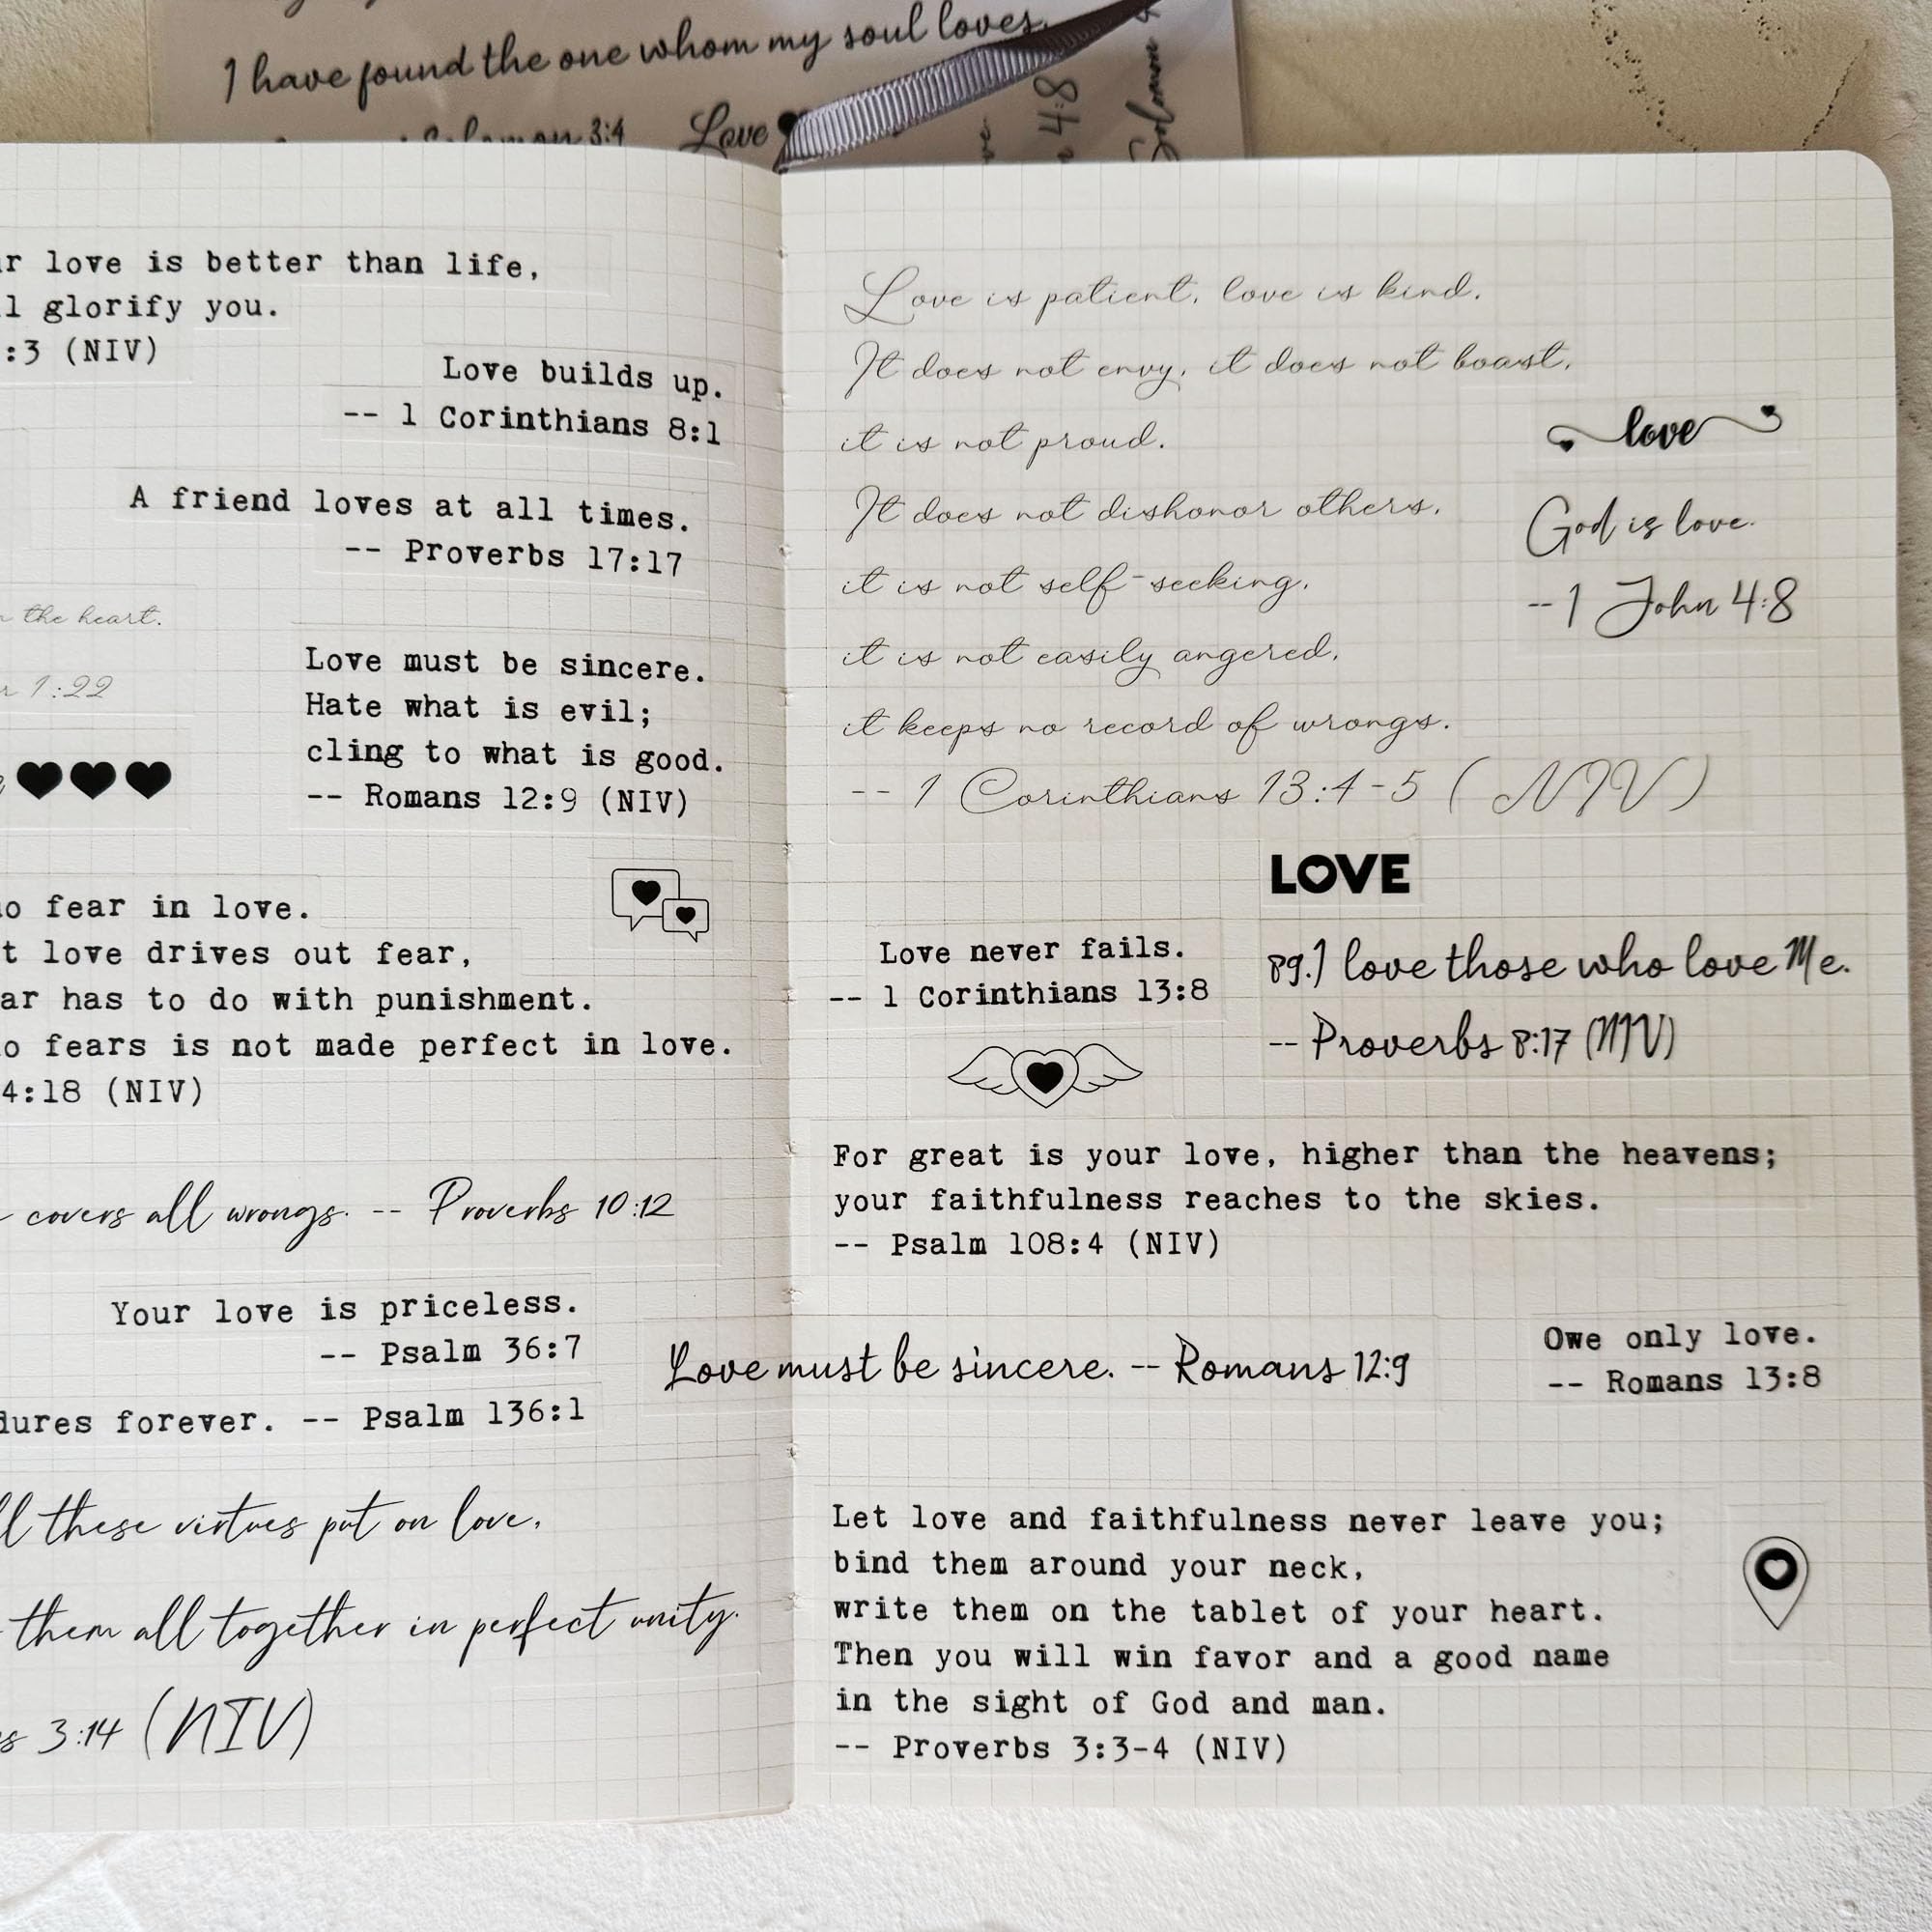 I have found the one whom my soul loves.
Solomon 3:4
Love
4:8
Solomon
love is better than life,
glorify you.
:3 (NIV)
Love builds up.
-- 1 Corinthians 8:1
A friend loves at all times.
-- Proverbs 17:17
the heart.
1:22
Love must be sincere.
Hate what is evil;
cling to what is good.
-- Romans 12:9 (NIV)
fear in love.
love drives out fear,
has to do with punishment.
fears is not made perfect in love.
4:18 (NIV)
covers all wrongs. -- Proverbs 10:12
Your love is priceless.
-- Psalm 36:7
forever. -- Psalm 136:1
these virtues put on love,
them all together in perfect unity.
3:14 (NIV)
Love is patient, love is kind.
It does not envy, it does not boast,
it is not proud.
It does not dishonor others,
it is not self-seeking,
it is not easily angered,
it keeps no record of wrongs.
-- 1 Corinthians 13:4-5 (NIV)
love
God is love.
--1 John 4:8
LOVE
Love never fails.
-- 1 Corinthians 13:8
89.I love those who love Me.
-- Proverbs 8:17 (NIV)
For great is your love, higher than the heavens;
your faithfulness reaches to the skies.
-- Psalm 108:4 (NIV)
Love must be sincere. -- Romans 12:9
Owe only love.
-- Romans 13:8
Let love and faithfulness never leave you;
bind them around your neck,
write them on the tablet of your heart.
Then you will win favor and a good name
in the sight of God and man.
-- Proverbs 3:3-4 (NIV)